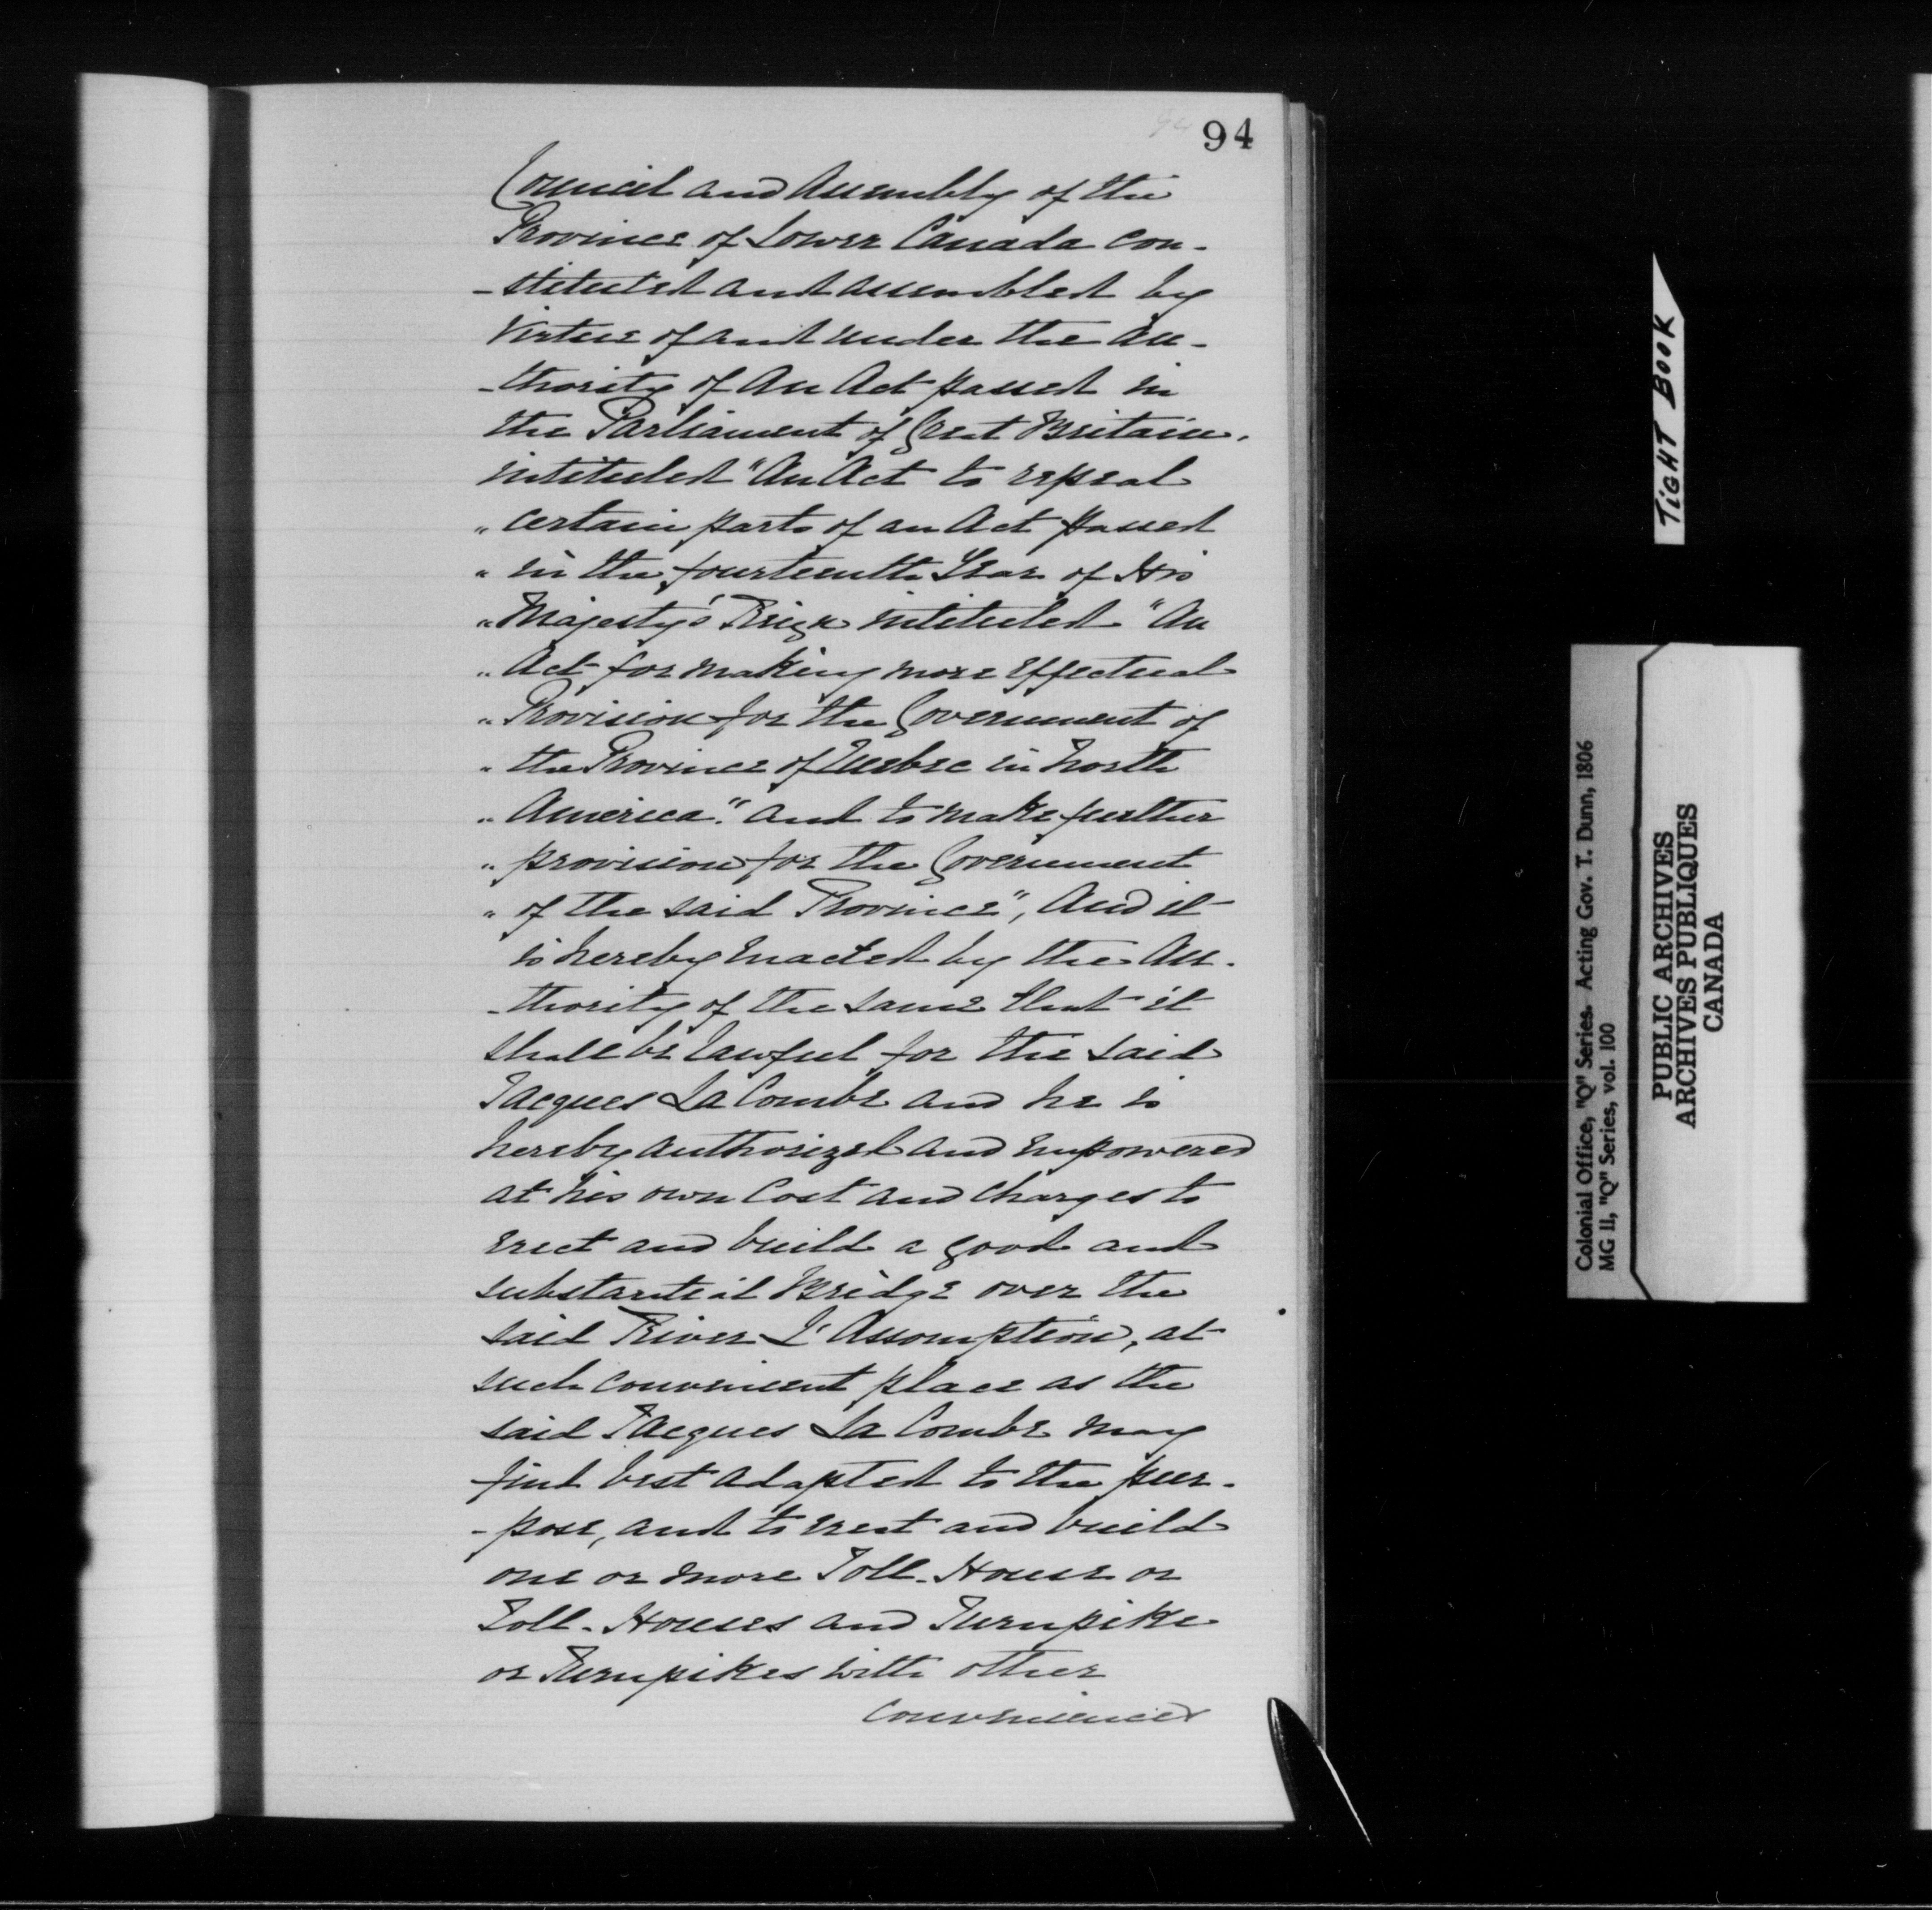 94
94
Council and Assembly of the
Province of Lower Canada con-
-stituted and assembled by
Virtue of and under the au-
-thority of An Act passed in
the Parliament of Great Britain,
intituled "An Act to repeal
" certain parts of an Act passed
" in the fourteenth Year of His
" Majesty's Reign intituled "An
" Act for making more effectual
" Provision for the Government of
" the Province of Quebec in North
" America." and to make further
" provision for the Government
" of the said Province", And it
is hereby enacted by the Au-
-thority of the same that it
shall be lawful for the said
Jacques La Combe and he is
hereby authorized and empowered
at his own Cost and Charges to
erect and build a good and
substantial Bridge over the
said River L'Assomption, at
such convenient place as the
said Jacques La Combe may
find best adapted to the pur-
-pose, and to erect and build
one or more Toll-House or
Toll-Houses and Turnpike
or Turnpikes with other
Conveniences
TIGHT BOOK
Colonial Office, "Q" Series. Acting Gov. T. Dunn, 1806
MG 11, "Q" Series, vol. 100
PUBLIC ARCHIVES
ARCHIVES PUBLIQUES
CANADA